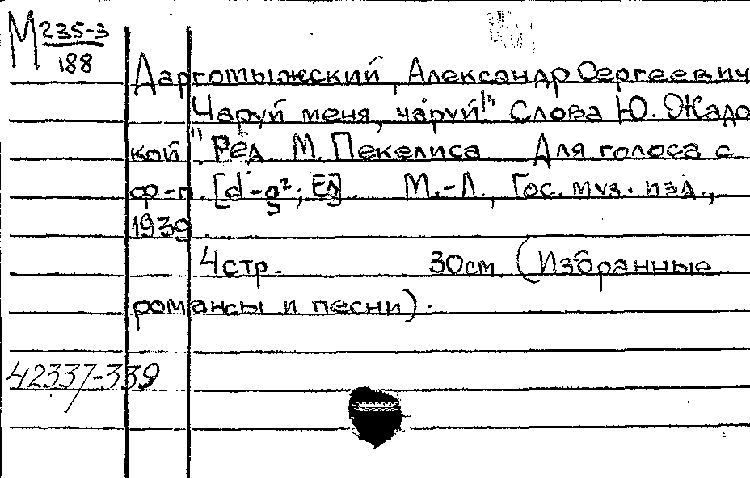 М 235-3
188
Даргомыжский, Александр Сергеевич
Чаруй меня, чаруй!" Слова Ю. Жадо
кой" Ред М. Пекелиса Для голоса с
ф-п. [d'-g²; Es] М.-Л., Гос. муз. изд.,
1939
4 стр. 30см (Избранные
романсы и песни).
42337-339